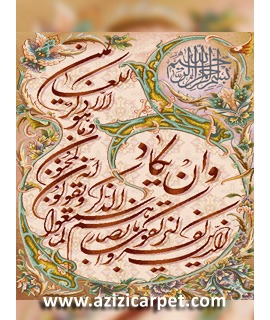 بسم الله الرحمن الرحیم
وان یکاد
الذین کفروا لیزلقونک بابصارهم
لما سمعوا الذکر ویقولون
انه لمجنون
وما هو الا ذکر
للعالمین
www.azizicarpet.com